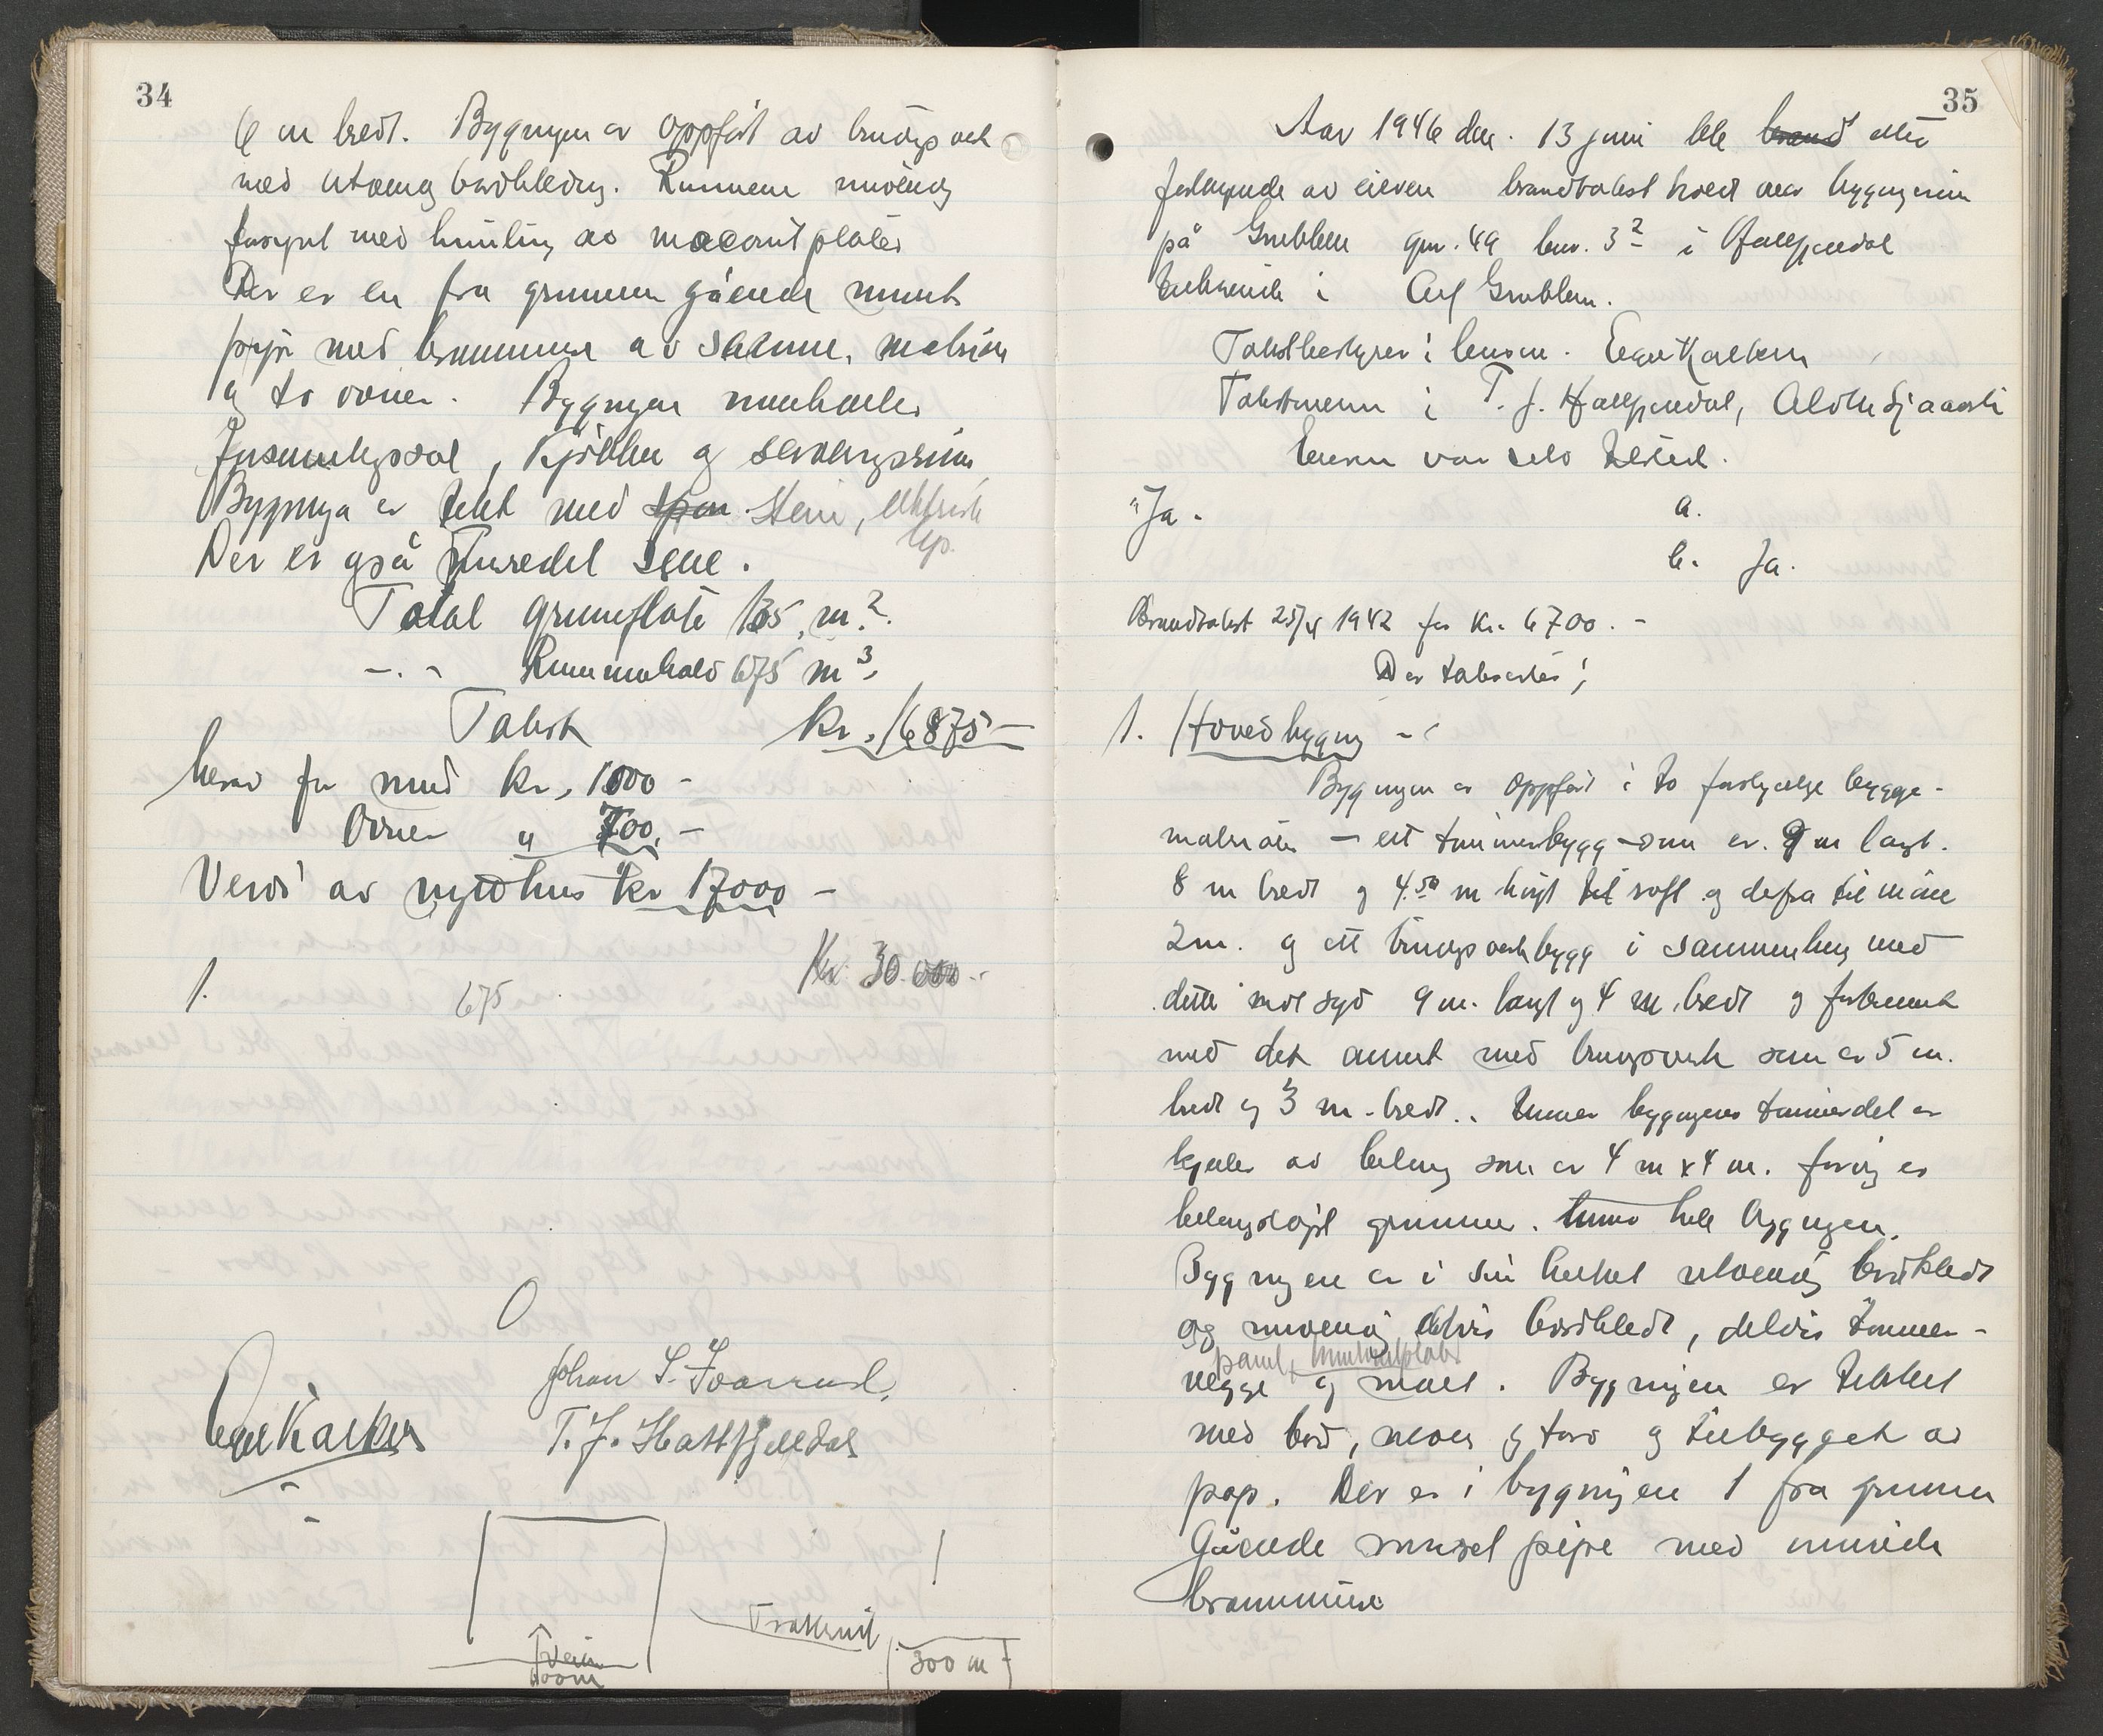 34
6 m bredt. Bygningen er oppført av bindingsverk
med utvendig bordkledning. Rummene innvendig
forsynt med himling av masonitplater
Der er en fra grunnen gående murt
pipe med brannmur av samme materiale
og to ovner. Bygningen inneholder
forsamlingssal, kjøkken og serveringsrum
Bygninga er tekt med stein, elektrisk
lys.
Der er også innredet scene.
Total grunnflate 135 m².
—.— Rumminhold 675 m³.
Takst kr. 16875 —
herav for mur kr. 1000 —
Ovner " 700. —
Verdi av nytt hus kr 17000 —
Kr. 30.000.-
1. 675
Johan S. Svarrud.
T. J. Hattfjelldal
Veien
300 m
35
Aar 1946 den. 13 juni ble brand etter
forlangende av eieren brandtakst holdt over bygningene
på Grubben gnr. 49 bnr. 3² i Hattfjelldal
tilhørende i Alf Grubben.
Takstbestyrer i lensm.
Takstmenn i T. J. Hattfjelldal,
Eieren var selv tilsted.
"Ja. a.
b. Ja.
Brandtakst 25/4 1942 for kr. 6700. -
Der takseres;
1. Hovedbygning -
Bygningen er oppført i to forskjelige bygge-
materialer — ett tømmerbygg som er 9 m langt.
8 m bredt og 4.50 m høgt til raft og defra til møne
2 m. og ett bindingsverkbygg i sammenheng med
dette mot syd 9 m. langt og 4 m bredt og forbundet
med det annet med bindingsverk som er 5 m.
bredt og 3 m. bredt. Under bygningens tømmerdel er
kjeller av betong som er 4 m x 4 m. forøvrig er
betongstøpt grunnmur under hele bygningen.
Bygningen er i sin helhet utvendig bordkledt
og innvendig delvis bordkledt, delvis tømmer-
panel
vegge og malt. Bygningen er tekket
med bord, never og torv og tilbygget av
pap. Der er i bygningen 1 fra grunnen
gående muret pipe med murede
brannmure